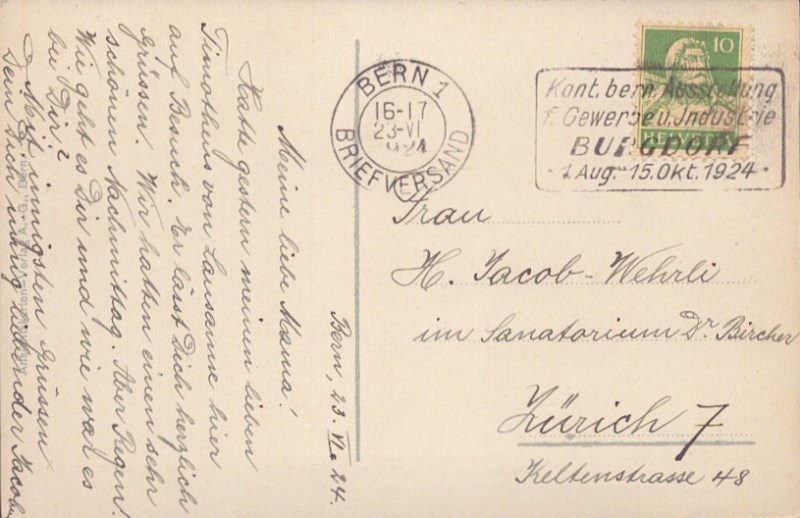 Bern, 23. VI. 24.
Meine liebe Mama!
Hatte gestern meinen lieben
Timotheus von Lausanne hier
auf Besuch. Er lässt Dich herzlich
grüssen. Wir hatten einen sehr
schönen Nachmittag. Aber Regen!
Wie geht es Dir und wie war es
bei Dir?
Mit innigsten Grüssen
Dein Dich liebender Jacob.
BERN 1
16-17
23-VI
1924
BRIEFVERSAND
10
HELVETIA
Kant. bern. Ausstellung
f. Gewerbe u. Industrie
BURGDORF
1 Aug.-15.Okt.1924
Frau
H. Jacob-Wehrli
im Sanatorium Dr Bircher
Zürich 7
Keltenstrasse 48